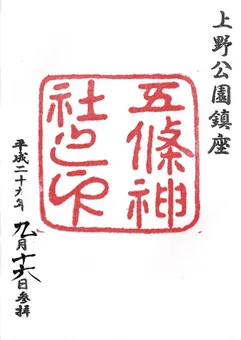 上野公園鎮座
五條神
社之印
平成二十六年
九月十六日参拝